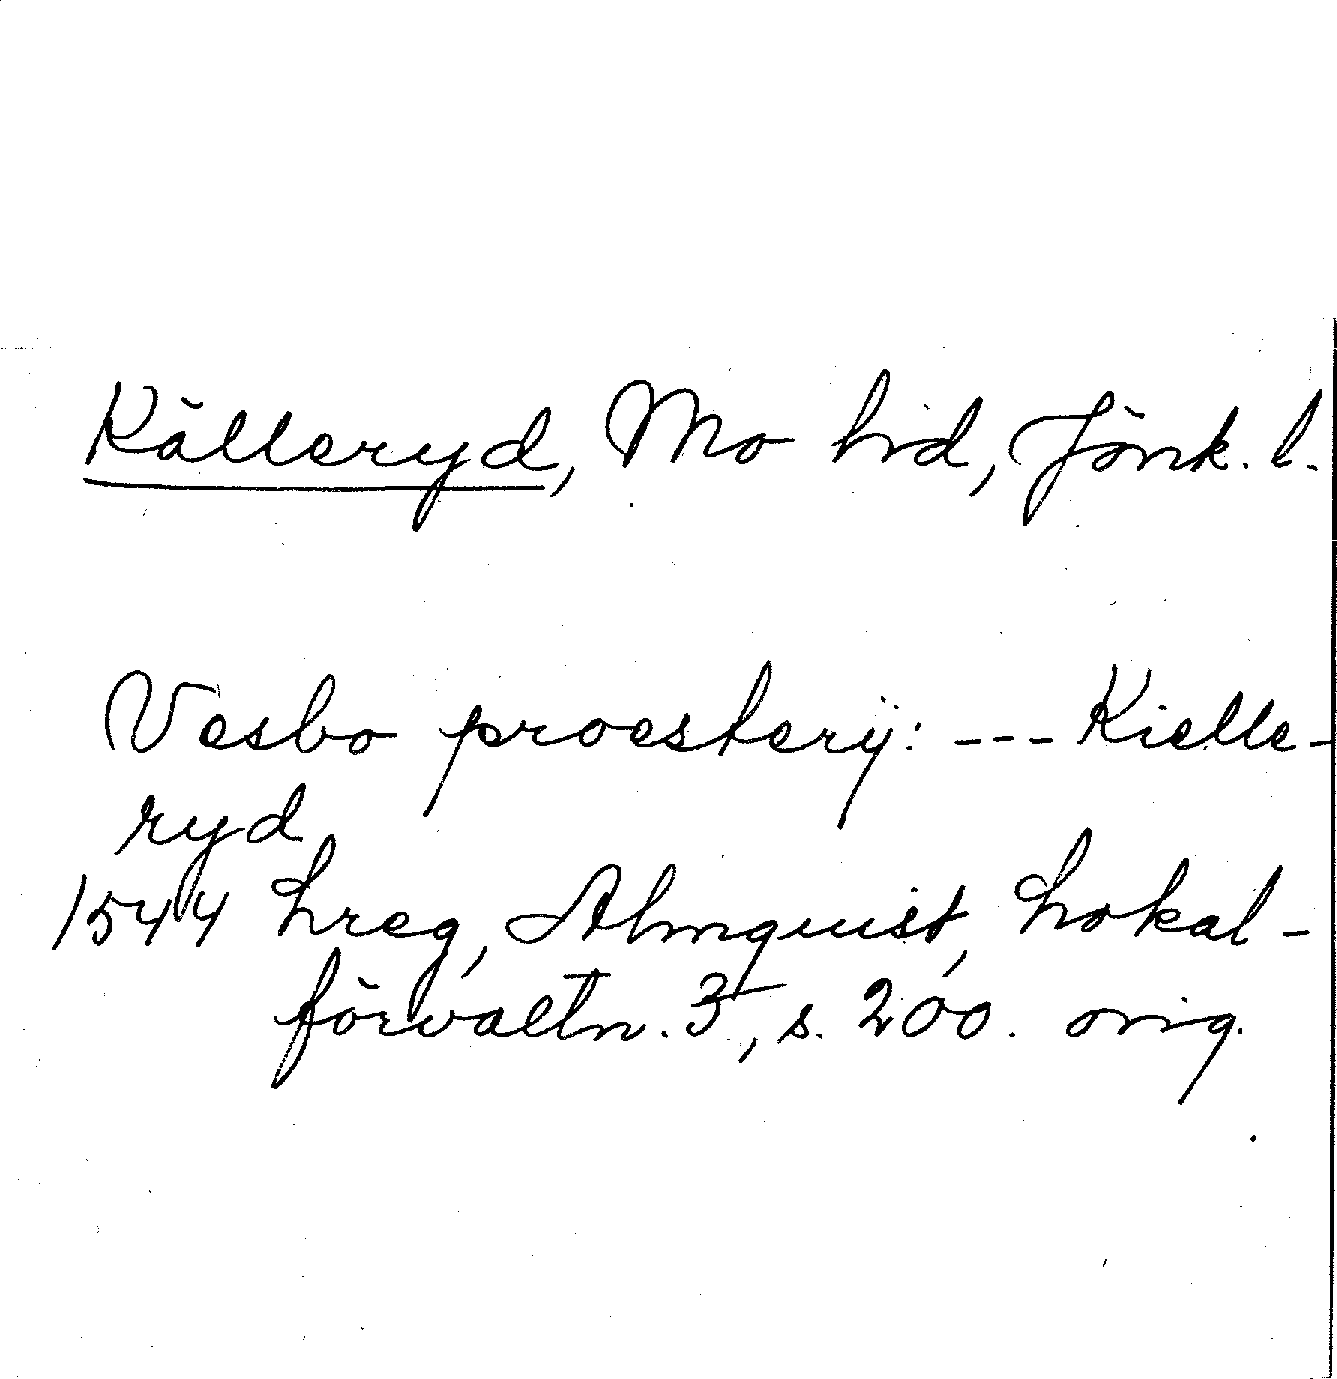 Källeryd, Mo hd, Jönk. l.
Vesbo proesterÿ: --- Kielle-
ryd
1544 Lreg, Almquist, Lokal-
förvaltn. 3, s. 200. orig.